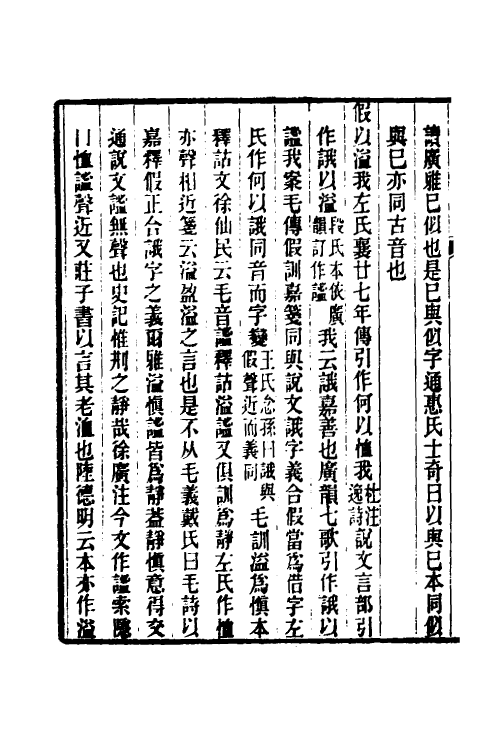 讀廣雅巳似也是巳與似字通惠氏士奇曰以與巳本同似
與巳亦同古音也
假以溢我左氏襄廿七年傳引作何以恤我杜注逸詩說文言部引
作誐以溢段氏本依廣韻訂作謐我云誐嘉善也廣韻七歌引作誐以
謐我案毛傳假訓嘉箋同與說文誐字義合假當爲借字左
氏作何以誐同音而字變王氏念孫曰誐與假聲近而義同毛訓溢爲慎本
釋詁文徐仙民云毛音謐釋詁溢謐又俱訓爲靜左氏作恤
亦聲相近箋云溢盈溢之言也是不从毛義戴氏曰毛詩以
嘉釋假正合誐字之義爾雅溢慎謐皆爲靜葢靜慎意得交
通說文謐無聲也史記惟刑之靜哉徐廣注今文作謐索隱
曰恤謐聲近又莊子書以言其老洫也陸德明云本亦作溢